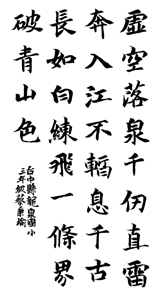 虛空落泉千仞直雷
奔入江不暫息千古
長如白練飛一條界
破青山色
台中縣龍泉國小
三年級蔡